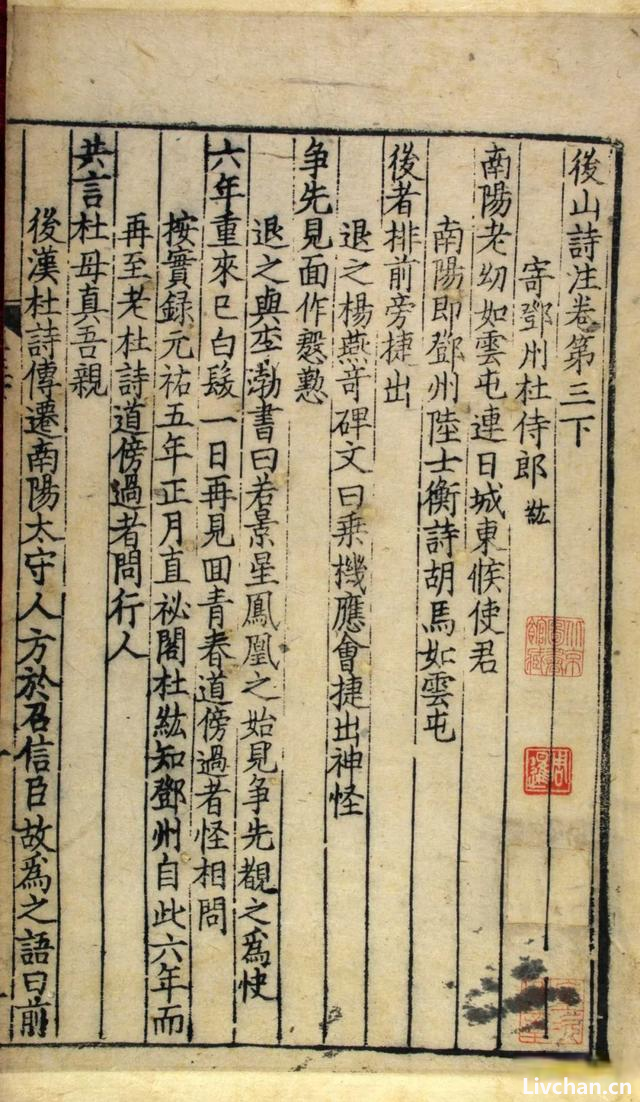 後山詩注卷第三下
寄鄧州杜侍郎 紘
南陽老幼如雲屯連日城東候使君
南陽即鄧州陸士衡詩胡馬如雲屯
後者排前旁捷出
退之楊燕竒碑文曰乗機應會捷出神怪
争先見面作慇懃
退之與李渤書曰若景星鳳凰之始見争先覩之爲快
六年重來已白髮一日再見回青春道傍過者怪相問
按實録元祐五年正月直祕閣杜紘知鄧州自此六年而
再至老杜詩道傍過者問行人
共言杜母真吾親
後漢杜詩傳遷南陽太守人方於召信臣故爲之語曰前
北京圖書館藏
周暹
Livchan.cn